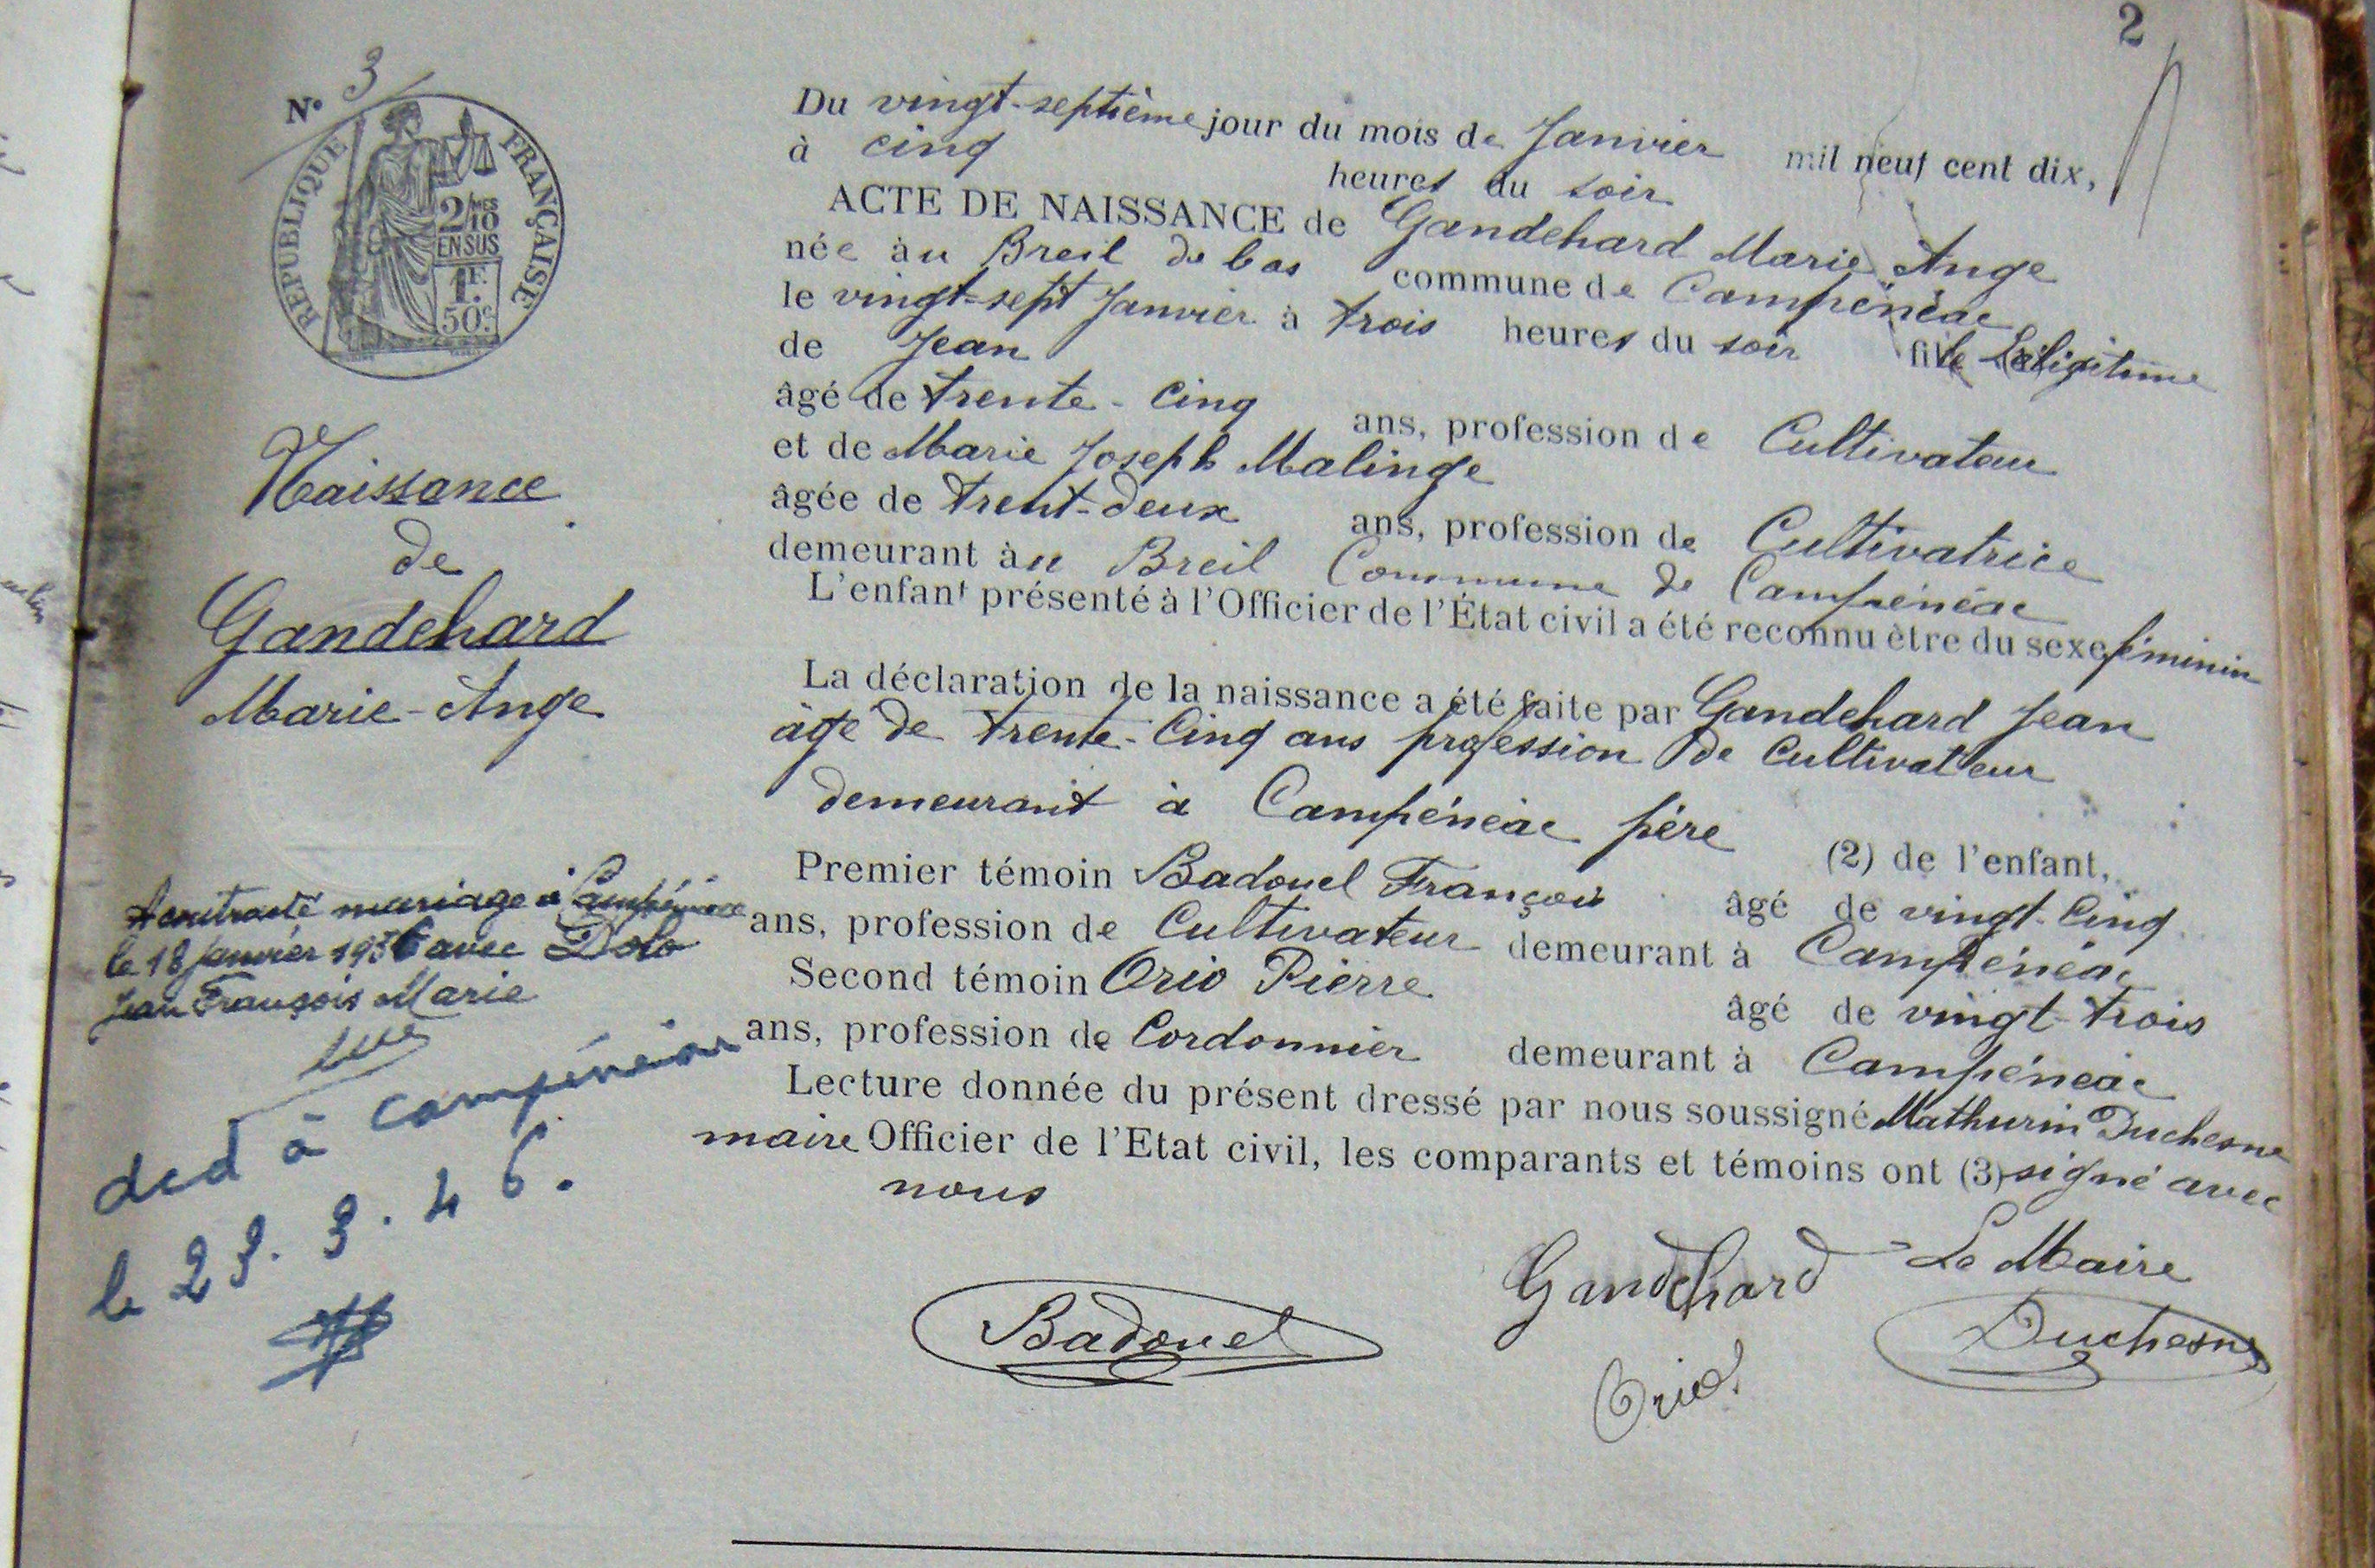 2
N° 3
RÉPUBLIQUE FRANÇAISE
2/10 MES
EN SUS
1F.
50c.
Du vingt-septième jour du mois de Janvier mil neuf cent dix,
à cinq heures du soir
ACTE DE NAISSANCE de Gandehard Marie Ange
née au Breil de bas commune de Campénéac
le vingt-sept Janvier à trois heures du soir fille légitime
de Jean
âgé de trente-cinq ans, profession de Cultivateur
et de Marie Joseph Malinge
âgée de trent-deux ans, profession de Cultivatrice
demeurant au Breil Commune de Campénéac
L'enfant présenté à l'Officier de l'État civil a été reconnu être du sexe féminin
La déclaration de la naissance a été faite par Gandehard Jean
âgé de trente-cinq ans profession de Cultivateur
demeurant à Campénéac père (2) de l'enfant,
Premier témoin Badouel François âgé de vingt-cinq
ans, profession de Cultivateur demeurant à Campénéac
Second témoin Orio Pierre âgé de vingt-trois
ans, profession de Cordonnier demeurant à Campénéac
Lecture donnée du présent dressé par nous soussigné Mathurin Duchesne
maire Officier de l'Etat civil, les comparants et témoins ont (3) signé avec
nous
Naissance
de
Gandehard
Marie-Ange
A contracté mariage à Campénéac
le 18 Janvier 1936 avec Dolo
Jean François Marie
dcd à campénéac
le 23.3.46.
Gandehard Le Maire
Badouel Duchesne
Orio